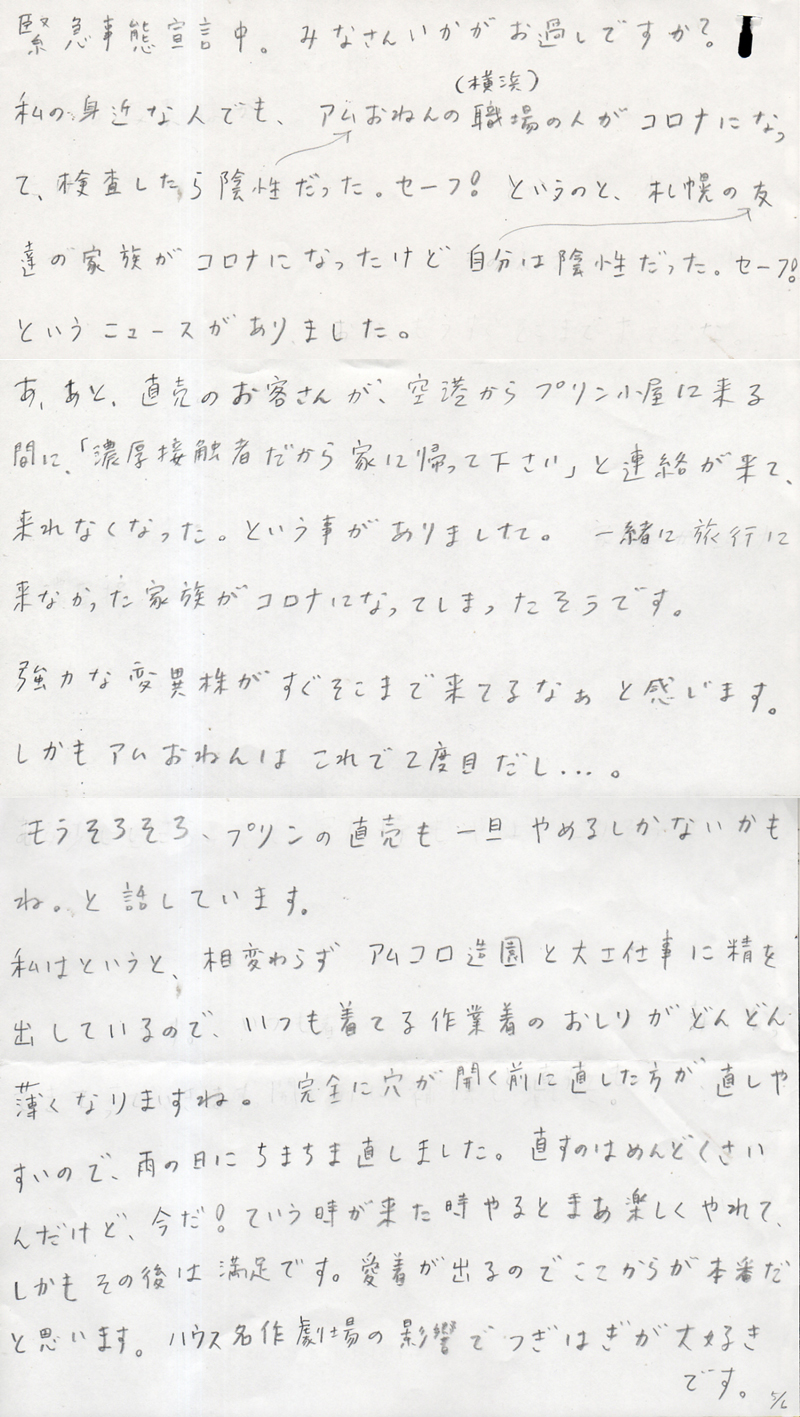 緊急事態宣言中。みなさんいかがお過しですか？
(横浜)
私の身近な人でも、アムおねんの職場の人がコロナになっ
て、検査したら陰性だった。セーフ！というのと、札幌の友
達の家族がコロナになったけど自分は陰性だった。セーフ！
というニュースがありました。
あ、あと、直売のお客さんが、空港からプリン小屋に来る
間に、「濃厚接触者だから家に帰って下さい」と連絡が来て、
来れなくなった。という事がありました。一緒に旅行に
来なかった家族がコロナになってしまったそうです。
強力な変異株がすぐそこまで来てるなぁと感じます。
しかもアムおねんはこれで2度目だし…。
もうそろそろ、プリンの直売も一旦やめるしかないかも
ね。と話しています。
私はというと、相変わらずアムコロ造園と大工仕事に精を
出しているので、いつも着てる作業着のおしりがどんどん
薄くなりますね。完全に穴が開く前に直した方が直しや
すいので、雨の日にちまちま直しました。直すのはめんどくさい
んだけど、今だ！ていう時が来た時やるとまあ楽しくやれて、
しかもその後は満足です。愛着が出るのでここからが本番だ
と思います。ハウス名作劇場の影響でつぎはぎが大好き
です。5/6